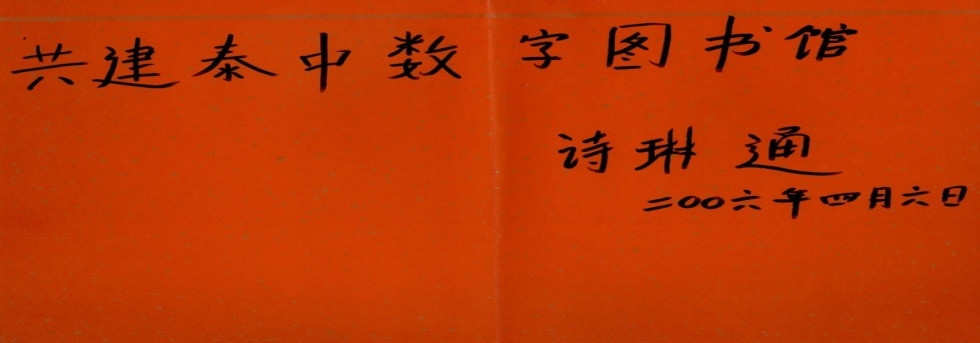 共建泰中数字图书馆
诗琳通
二〇〇六年四月六日